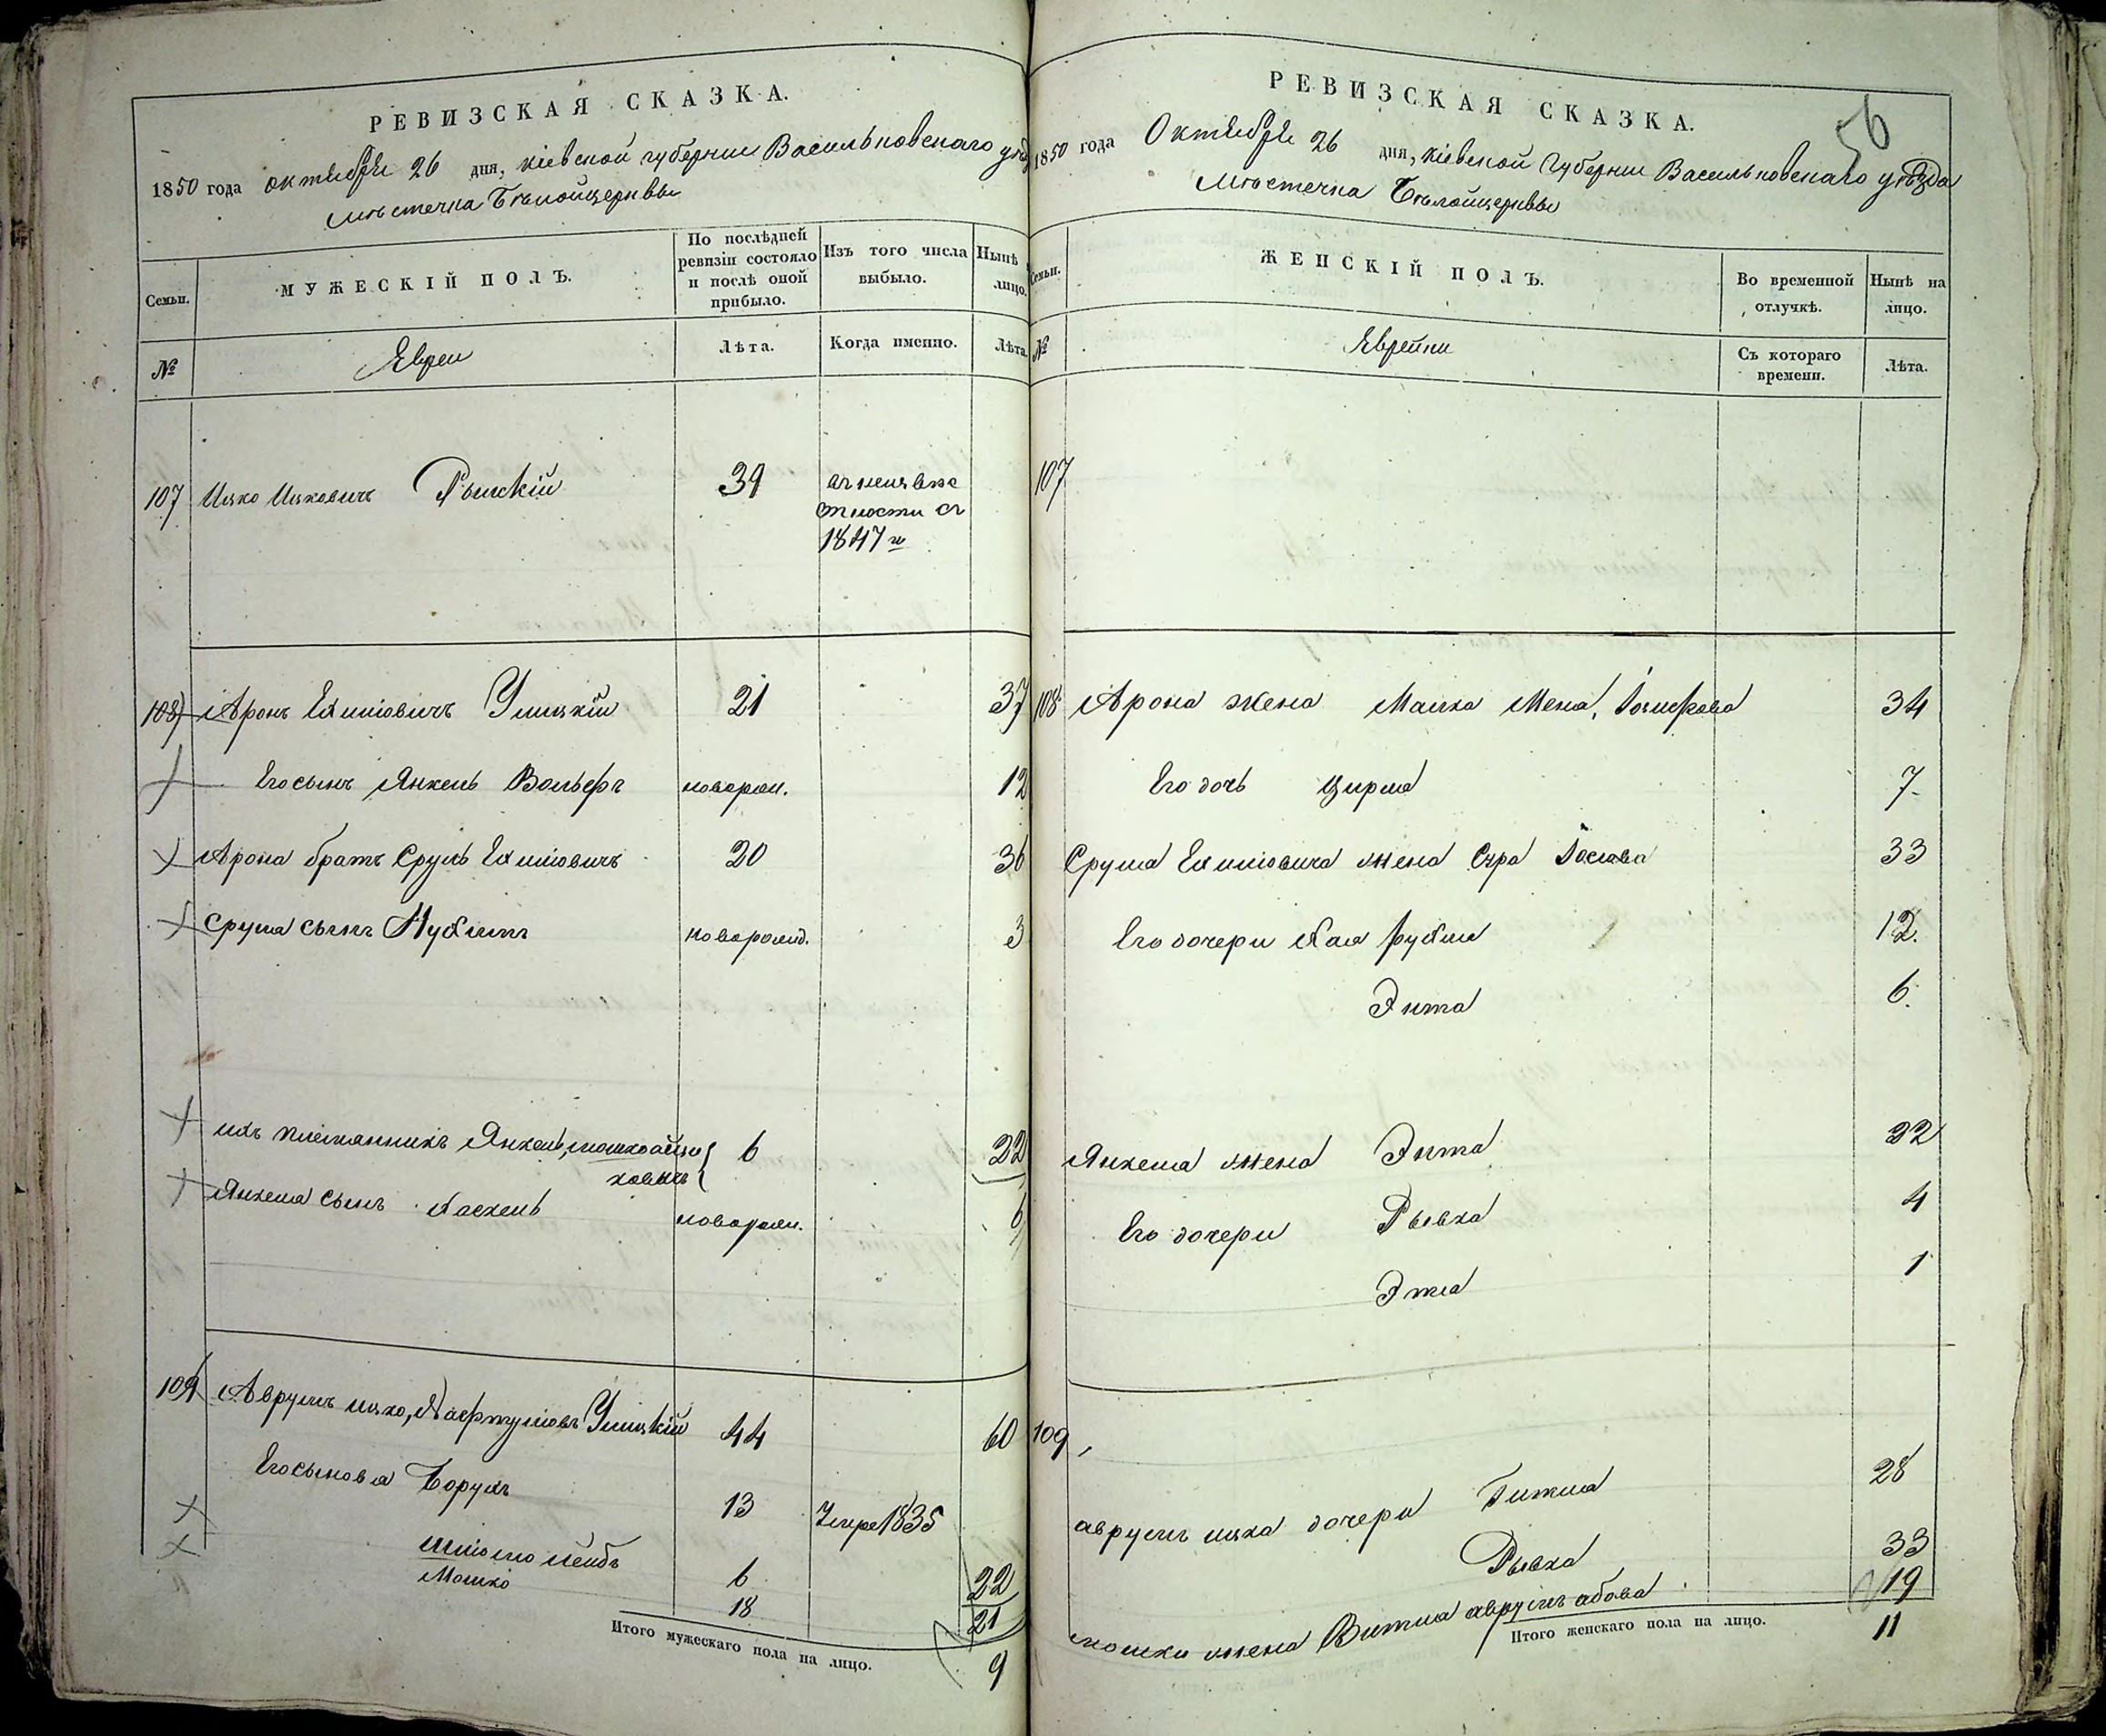 РЕВИЗСКАЯ СКАЗКА.
1850 года октября 26 дня, Кіевской губерніи Васильковскаго уѣзда
мѣстечка Бѣлойцеркви
Семьи.
МУЖЕСКІЙ ПОЛЪ.
По послѣдней ревизіи состояло и послѣ оной прибыло.
Изъ того числа выбыло.
Нынѣ лицо.
№
Евреи
Лѣта.
Когда именно.
Лѣта.
107 Ицко Ицковичъ 39 въ неизвѣстности съ 1847 г
108 Аронъ Хаимовичъ Улицкій 21 37
Его сынъ Янкель Вольфъ новорож. 12
Арона братъ Сруль Хаимовичъ 20 36
Сруля сынъ Нухимъ новорожд. 3
ихъ племянникъ Янкель, Мошко Ицковичъ 6 22
Янкеля сынъ Хаскель новорож. 6
109 Аврумъ Ицко, Улицкій 44 60
Его сыновья Борухъ 13 Умре 1835
Шліомо Лейбъ 6 22
Мошко 18 21
Итого мужескаго пола на лицо. 9
РЕВИЗСКАЯ СКАЗКА.
56
1850 года Октября 26 дня, Кіевской Губерніи Васильковскаго уѣзда
Мѣстечка Бѣлойцеркви
Семьи.
ЖЕНСКІЙ ПОЛЪ.
Во временной отлучкѣ.
Нынѣ на лицо.
№
Еврейки
Съ котораго времени.
Лѣта.
107
108 Арона жена Малка 34
Его дочь Цирля 7
Сруля Хаимовича жена 33
Его дочери Хая Рухля 12.
Энта 6.
Янкеля жена Энта 22
Его дочери Рывка 4
Этла 1
109
Аврумъ Ицка дочери Гитля 28
Рывка 33
Мошки жена Витля 19
Итого женскаго пола на лицо. 11